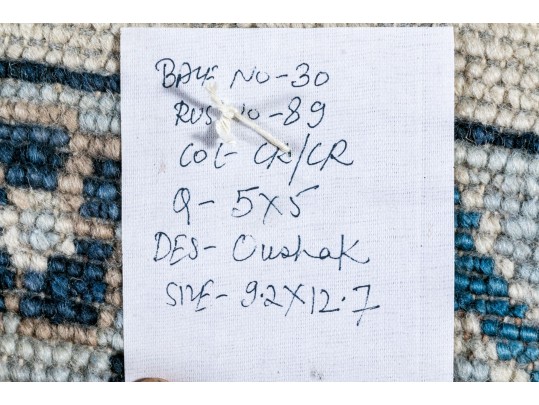 BALE NO-30
RUG NO-89
COL- CR/CR
Q- 5X5
DES- Oushak
SIZE- 9.2X12.7